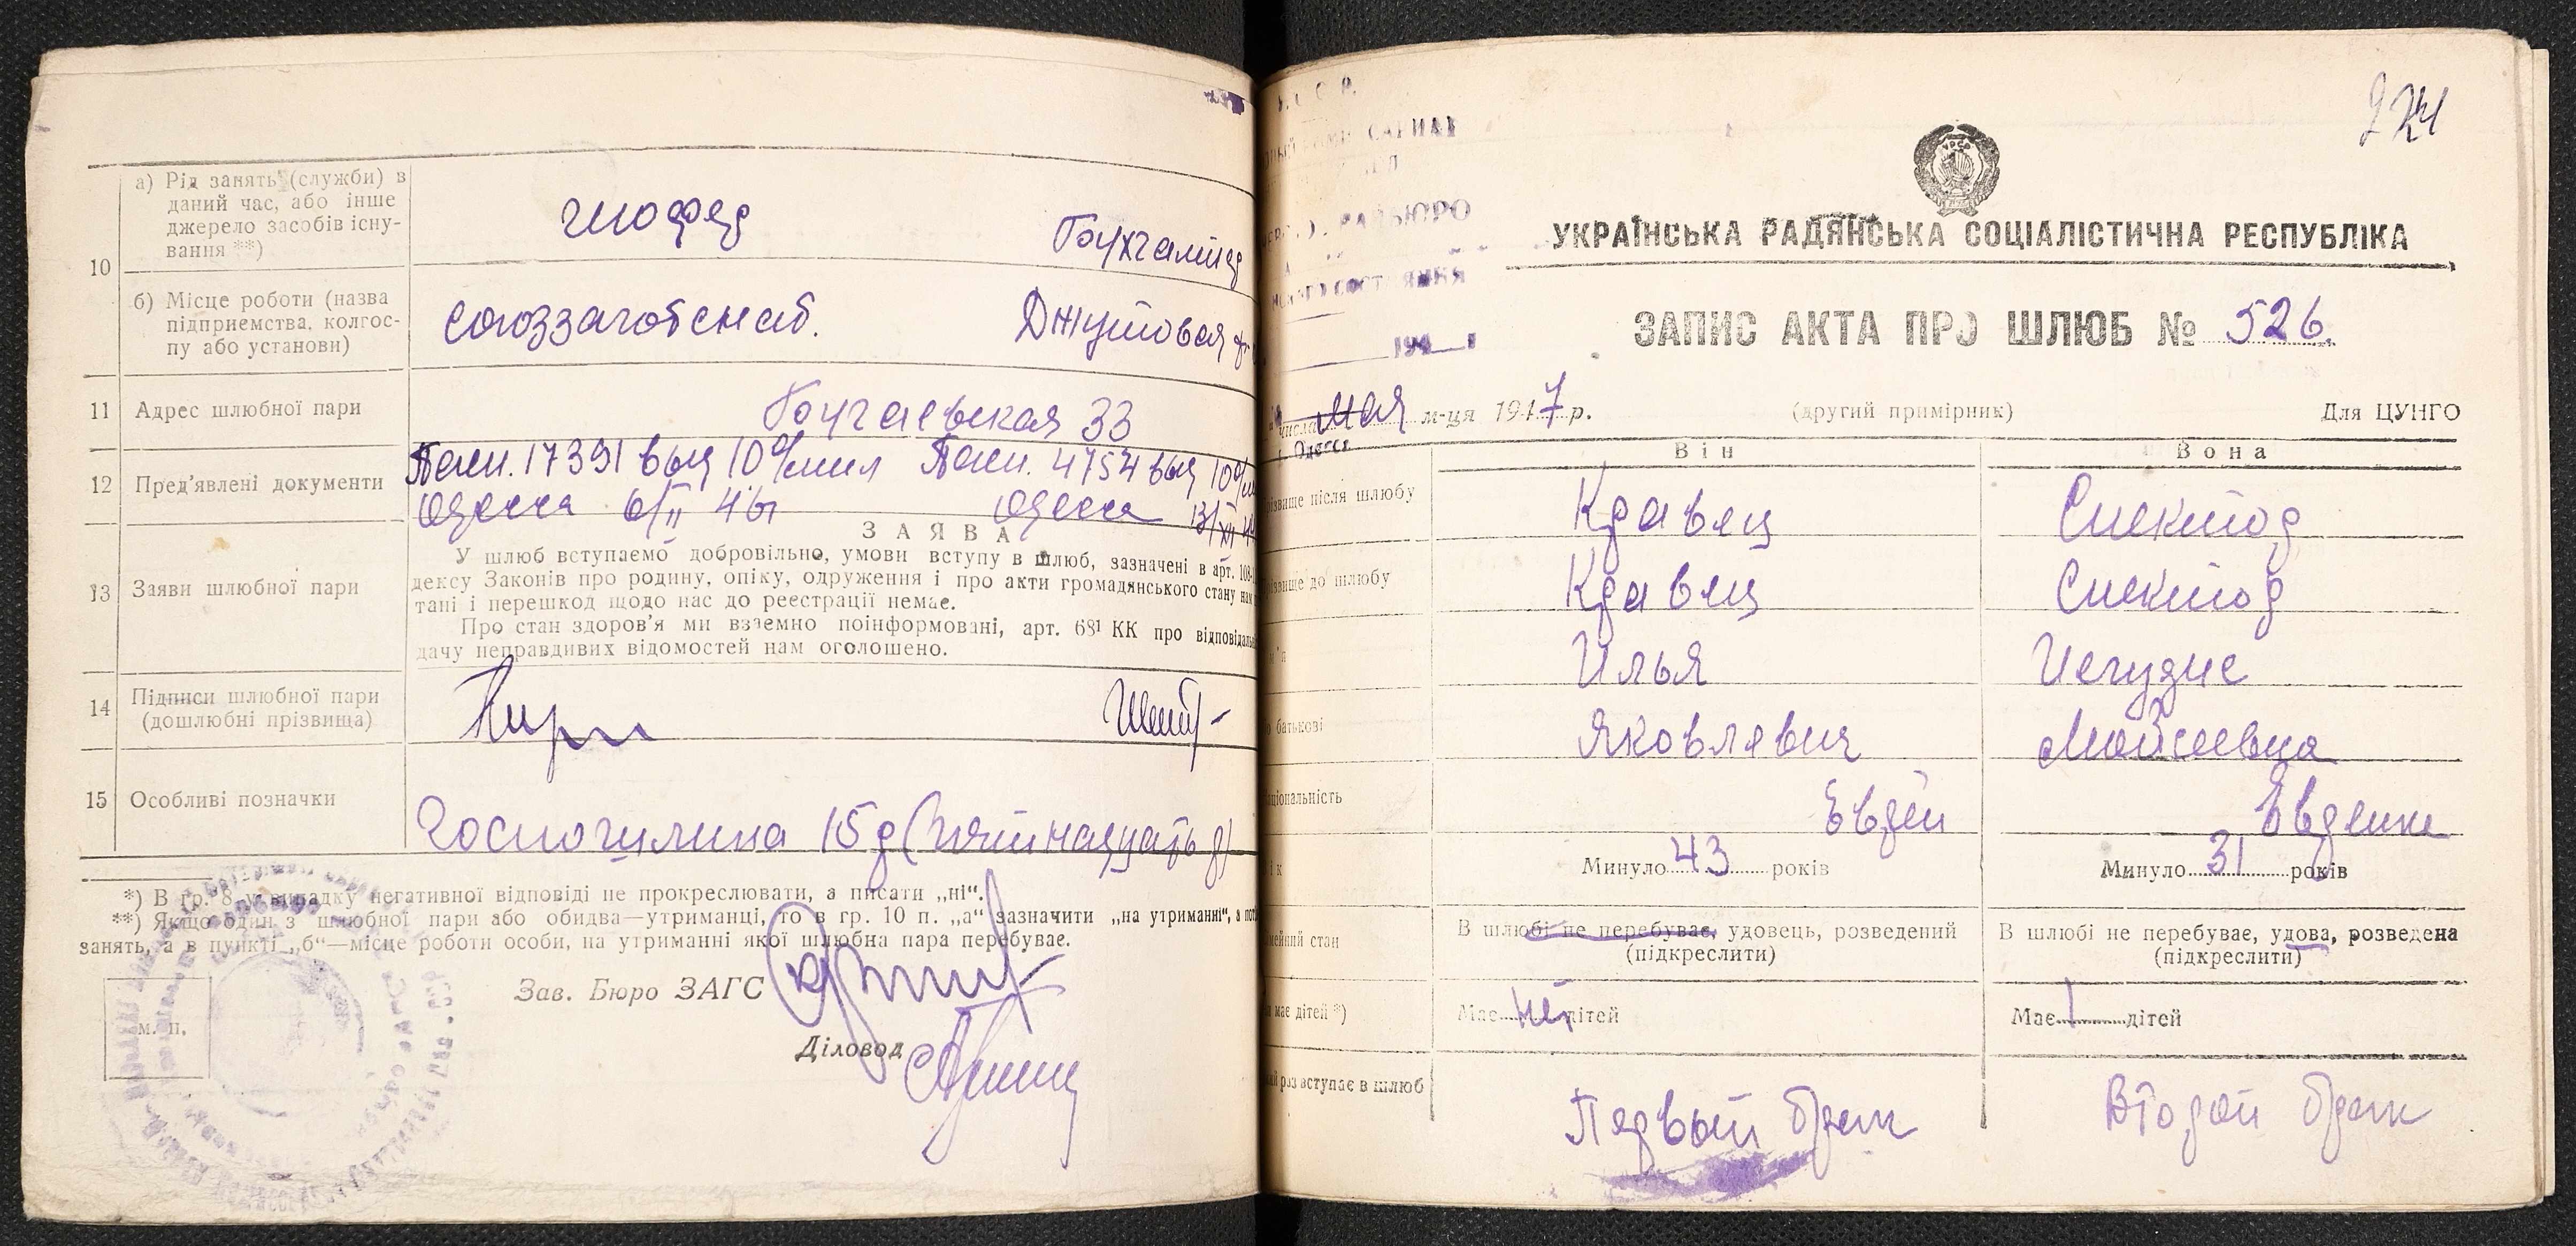 а) Рід занять (служби) в
даний час, або інше
джерело засобів існу-
вання **)
шофер
Бухгалтер
10
б) Місце роботи (назва
підприємства, колгос-
пу або установи)
Союззаготснаб.
Джутовая ф-
11 Адрес шлюбної пари
33
12 Пред'явлені документи
Пасп. 17391 выд 10 о/мил Пасп. 4754 выд 10 о/
Одесса 6/II 46 Одесса 13/XII
ЗАЯВА
13 Заяви шлюбної пари
У шлюб вступаємо добровільно, умови вступу в шлюб, зазначені в арт.
дексу Законів про родину, опіку, одруження і про акти громадянського стану нам
тані і перешкод щодо нас до реєстрації немає.
Про стан здоров'я ми взаємно поінформовані, арт. 68¹ КК про відповідаль
дачу неправдивих відомостей нам оголошено.
14 Підписи шлюбної пари
(дошлюбні прізвища)
15 Особливі позначки
Госпошлина 15 р (Пятнадцать р)
*) В гр. 8 у випадку негативної відповіді не прокреслювати, а писати „ні".
**) Якщо один з шлюбної пари або обидва—утриманці, то в гр. 10 п. „а" зазначити „на утриманні", а пот
занять, а в пункті „б"—місце роботи особи, на утриманні якої шлюбна пара перебуває.
Зав. Бюро ЗАГС
м. п.
Діловод
УКРАЇНСЬКА РАДЯНСЬКА СОЦІАЛІСТИЧНА РЕСПУБЛІКА
ЗАПИС АКТА ПРО ШЛЮБ № 526.
числа мая м-ця 1947 р. (другий примірник) Для ЦУНГО
г. Одесса
Він Вона
різвище після шлюбу Кравец Спектор
різвище до шлюбу Кравец Спектор
м'я Илья
о батькові Яковлевич Мойсеевна
аціональність Еврей Еврейка
ік Минуло 43 років Минуло 31 років
мейний стан В шлюбі не перебуває, удовець, розведений В шлюбі не перебуває, удова, розведена
(підкреслити) (підкреслити)
и має дітей *) Має нет дітей Має 1 дітей
ий раз вступає в шлюб Первый брак Второй брак